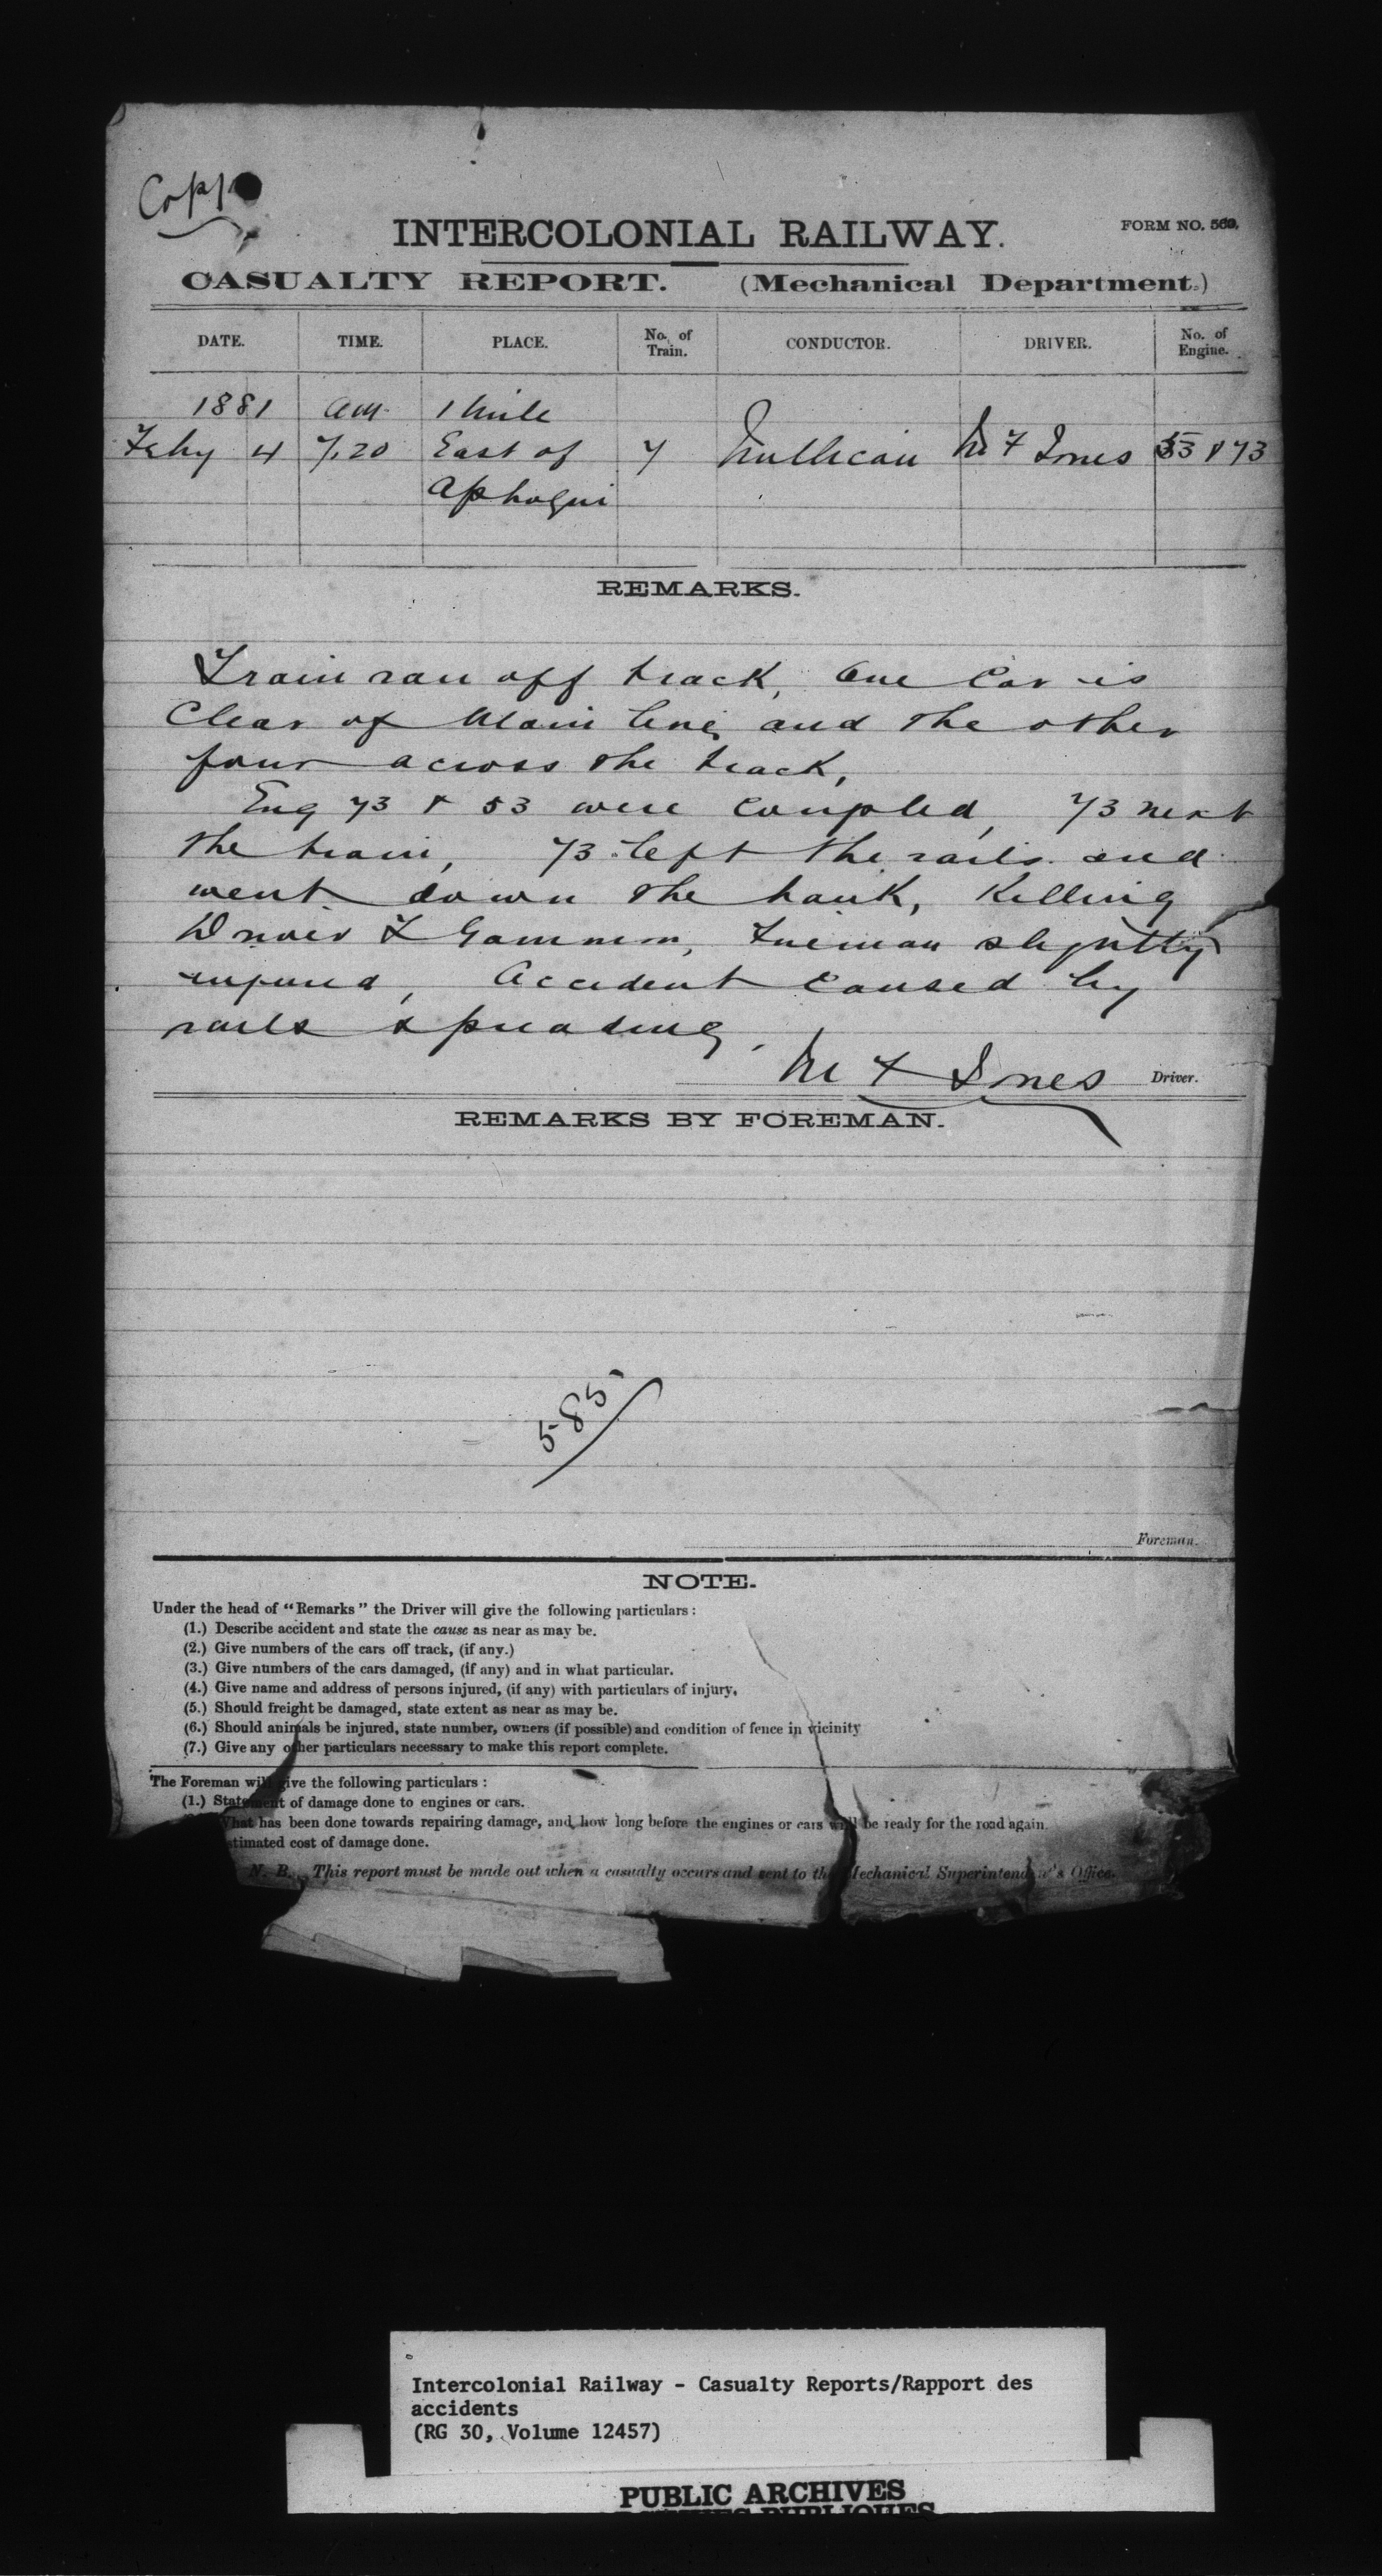 Copy
INTERCOLONIAL RAILWAY.
FORM NO. 560.
CASUALTY REPORT. (Mechanical Department.)
DATE. TIME. PLACE. No. of Train. CONDUCTOR. DRIVER. No. of Engine.
1881 am 1 Mile
Feby 4 7.20 East of 7 Mullican M F Jones 53 & 73
Aphogui
REMARKS.
Train ran off track, One Car is
Clear of Main line, and the other
four across the track,
Eng 73 & 53 were Coupled, 73 next
the train, 73 left the rails and
went down the bank, Killing
Driver Gammon, Fireman slightly
injured, Accident Caused by
rails spreading.
M F Jones Driver.
REMARKS BY FOREMAN.
585
Foreman.
NOTE.
Under the head of "Remarks" the Driver will give the following particulars:
(1.) Describe accident and state the cause as near as may be.
(2.) Give numbers of the cars off track, (if any.)
(3.) Give numbers of the cars damaged, (if any) and in what particular.
(4.) Give name and address of persons injured, (if any) with particulars of injury.
(5.) Should freight be damaged, state extent as near as may be.
(6.) Should animals be injured, state number, owners (if possible) and condition of fence in vicinity
(7.) Give any other particulars necessary to make this report complete.
The Foreman will give the following particulars:
(1.) Statement of damage done to engines or cars.
What has been done towards repairing damage, and how long before the engines or cars will be ready for the road again.
stimated cost of damage done.
N. B. This report must be made out when a casualty occurs and sent to the Mechanical Superintendent's Office.
Intercolonial Railway - Casualty Reports/Rapport des
accidents
(RG 30, Volume 12457)
PUBLIC ARCHIVES
PUBLIQUES